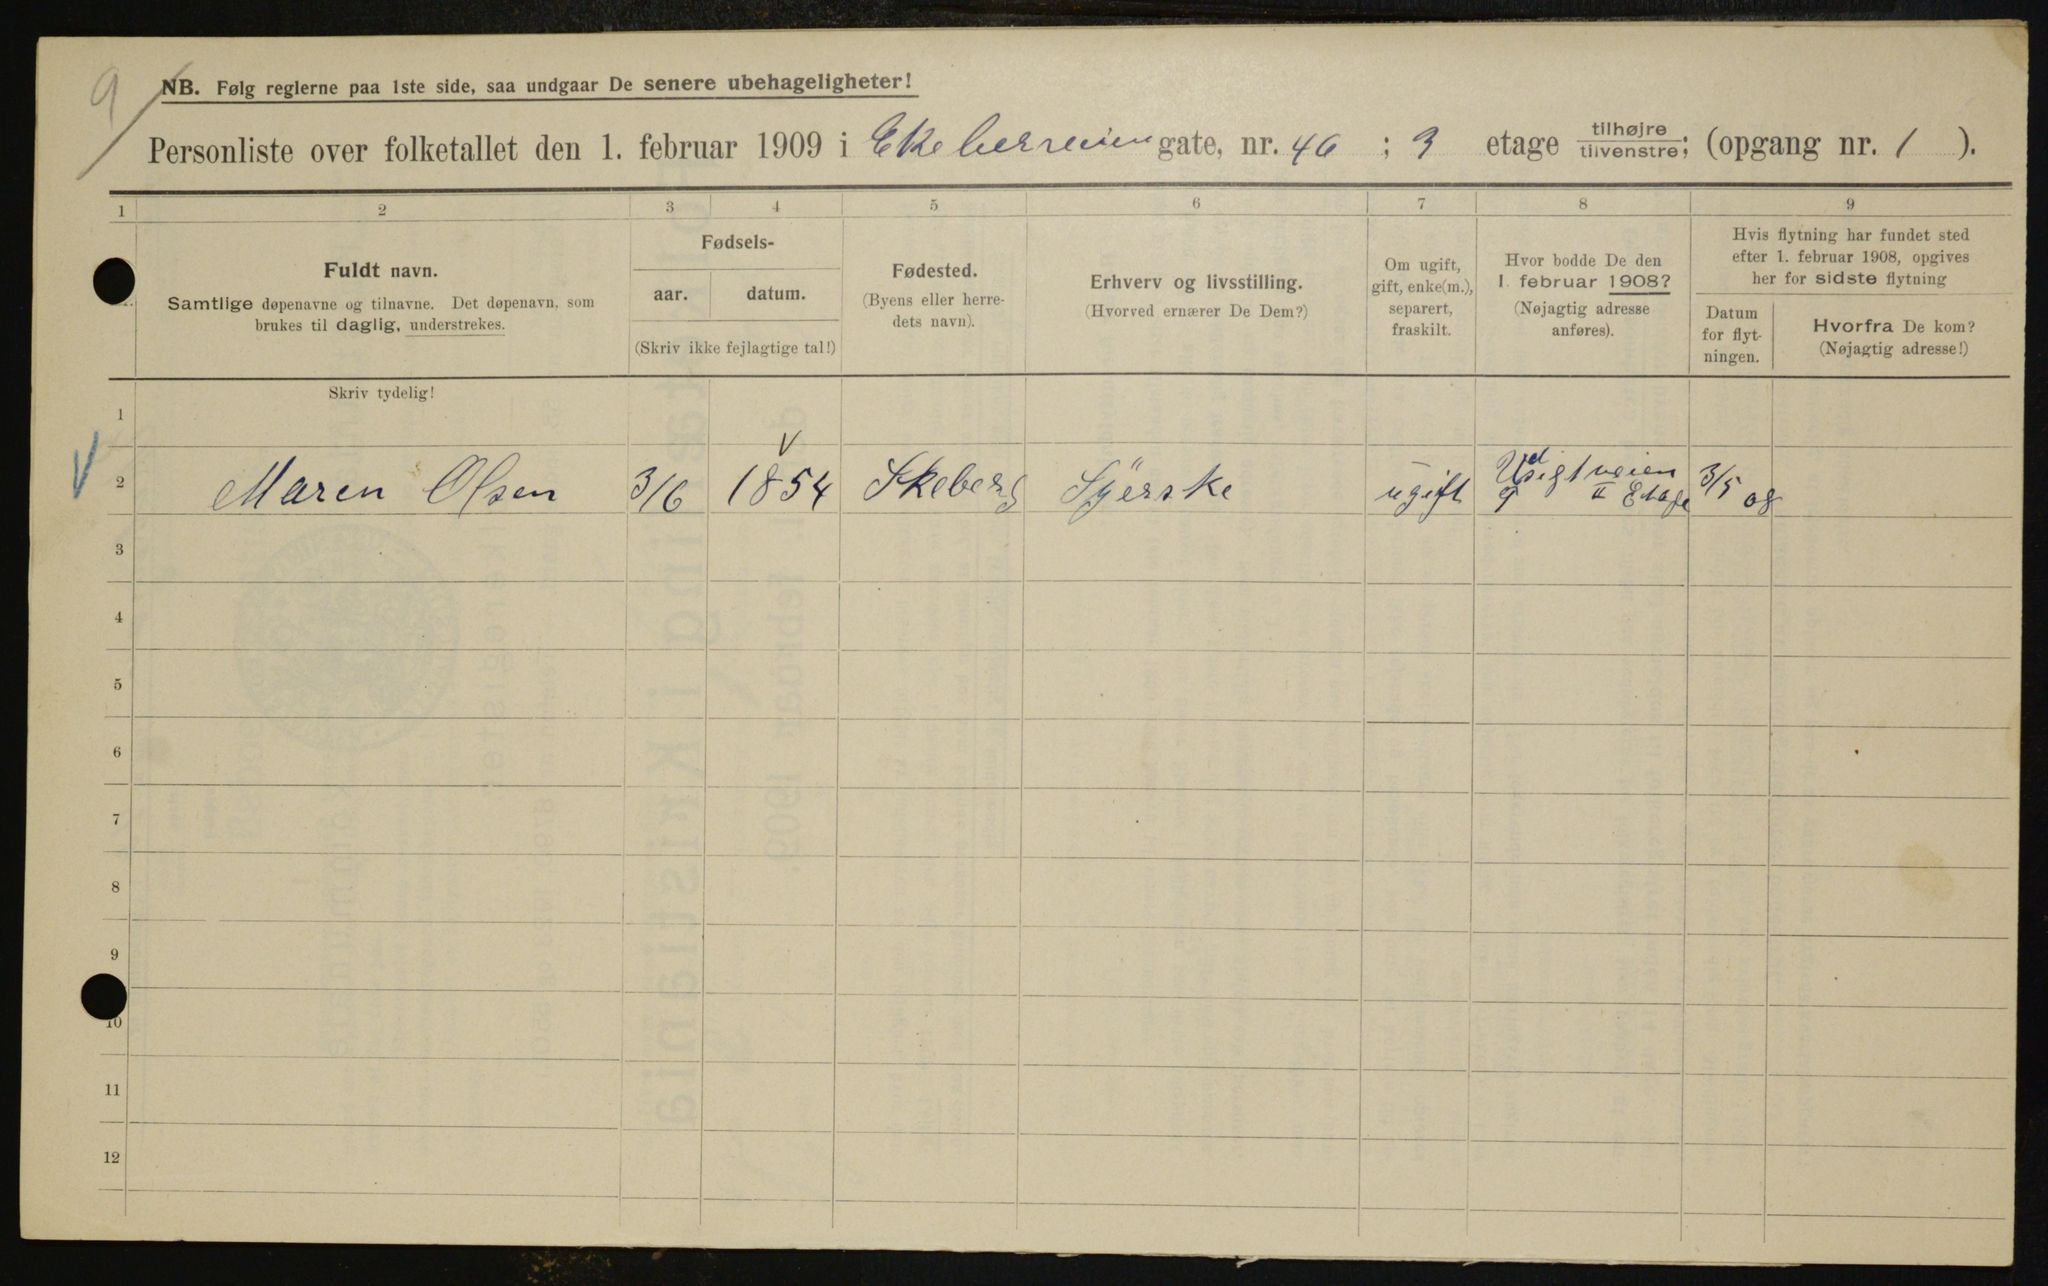 9
NB. Følg reglerne paa 1ste side, saa undgaar De senere ubehageligheter!
Personliste over folketallet den 1. februar 1909 i Ekeberveien gate, nr. 46 ; 3 etage tilhøjre/tilvenstre; (opgang nr. 1 ).
1 2 3 4 5 6 7 8 9
Fuldt navn.
Samtlige døpenavne og tilnavne. Det døpenavn, som
brukes til daglig, understrekes.
Fødsels-
aar. datum.
(Skriv ikke fejlagtige tal!)
Fødested.
(Byens eller herre-
dets navn).
Erhverv og livsstilling.
(Hvorved ernærer De Dem?)
Om ugift,
gift, enke(m.),
separert,
fraskilt.
Hvor bodde De den
1. februar 1908?
(Nøjagtig adresse
anføres).
Hvis flytning har fundet sted
efter 1. februar 1908, opgives
her for sidste flytning
Datum
for flyt-
ningen.
Hvorfra De kom?
(Nøjagtig adresse!)
Skriv tydelig!
1
2 Maren Olsen 3/6 1854 Skeberg Syerske ugift Udsigtveien 9 II Etage 3/5 08
3
4
5
6
7
8
9
10
11
12